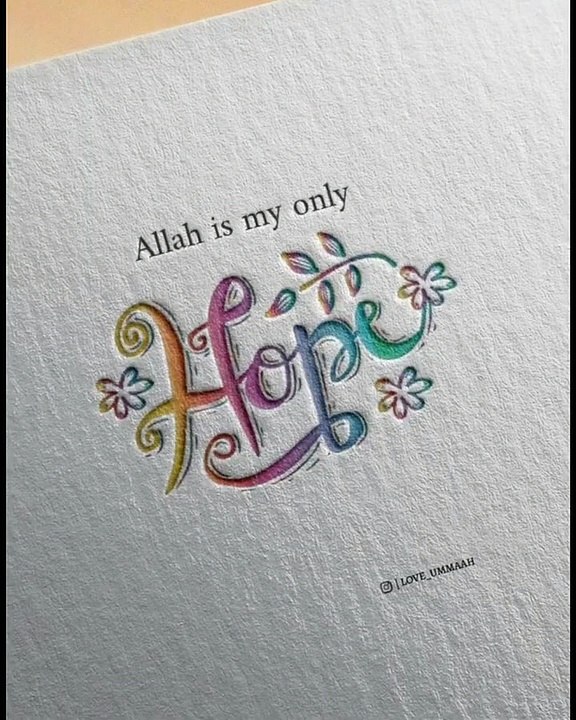 Allah is my only
Hope
| LOVE_UMMAAH